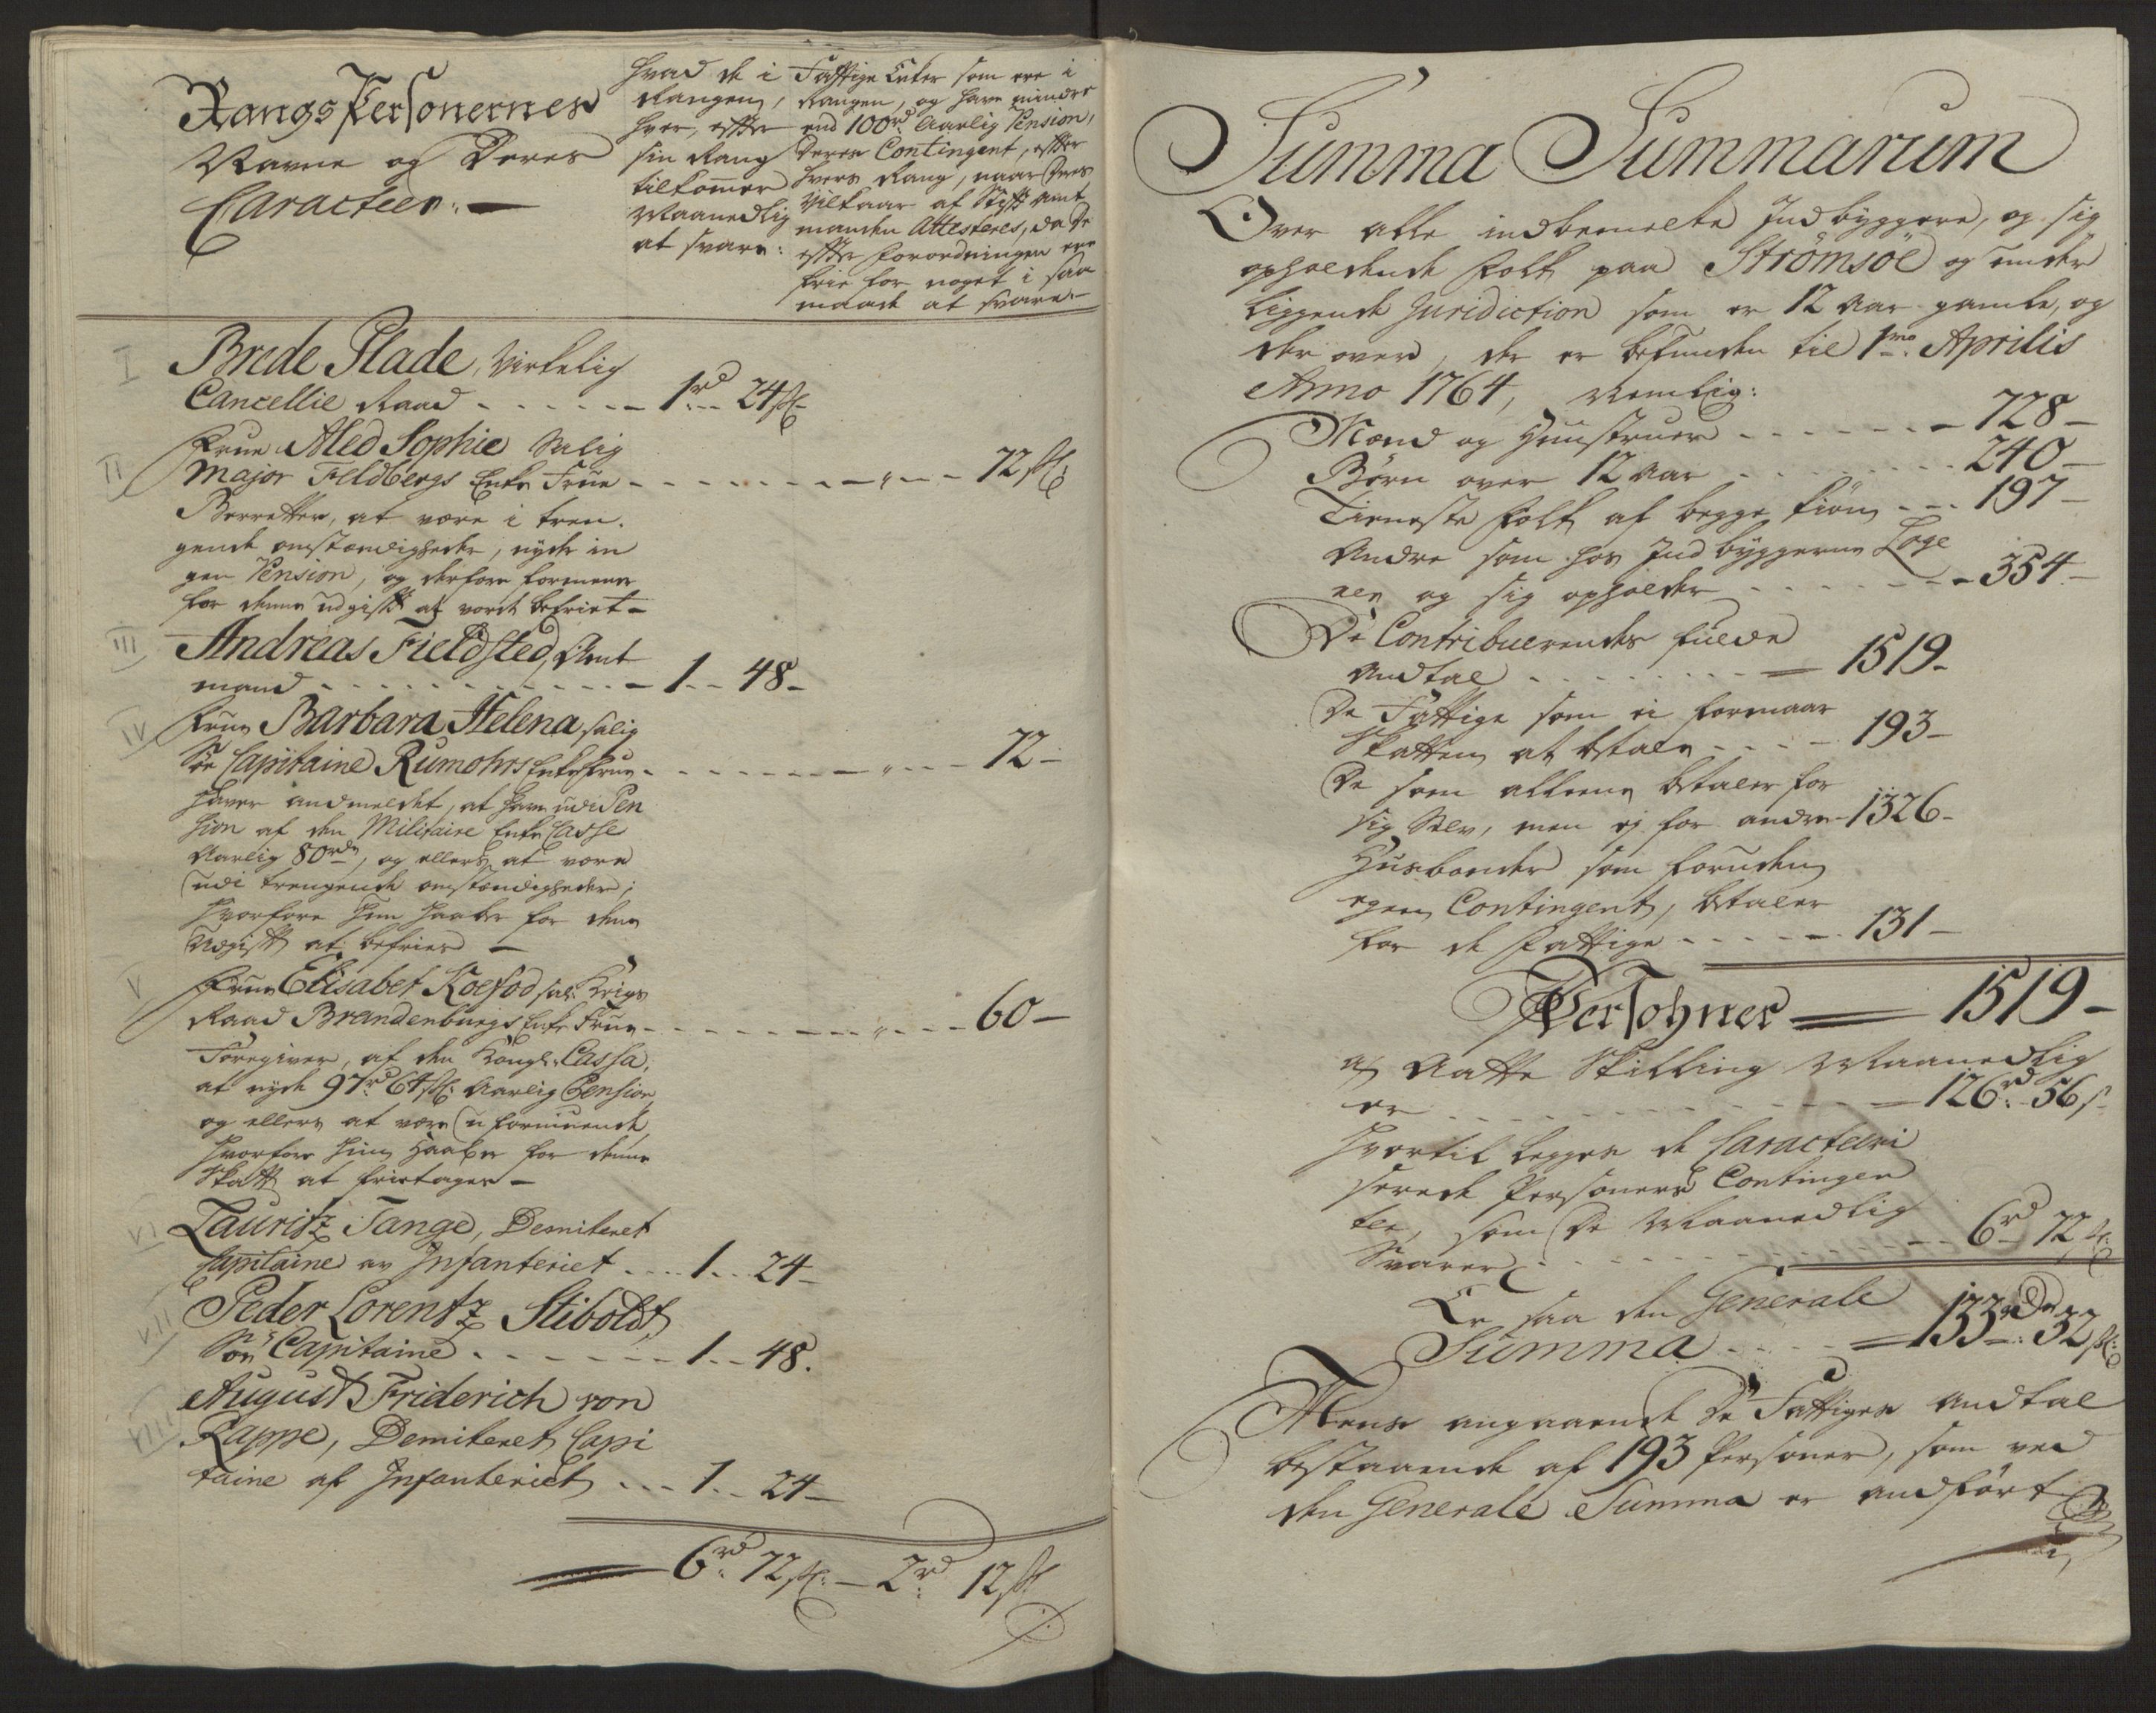 Rangs Personernes
Navne og Deres
Caracteer. —
Hvad de i
Rangen,
hver, efter
sin Rang
tilkommer
Maanedlig
at svare:
Fattige Enker som ere i
Rangen, og have mindre
end 100rd Aarlig Pension,
Deres Contingent, efter
hvers Rang, naar Deres
Vilkaar af Stift Amt
manden Attesteres, da De
efter Forordningen ere
frie for noget i saa
maade at svare.—
I Brede Plade, Virkelig
Cancellie Raad - - - - - - 1rd - 24 s
II Frue Aled Sophie Salig
Major Feldbergs Enke Frue - - - - - - - - " - - 72 s
Berretter, at være i tren-
gende omstændigheder, nyde in
gen Pension, og derfore formener
for denne udgift at vorde befriet —
III Andreas Fieldsted, Amt
mand - - - - - - - - - 1 - - 48 -
IV Frue Barbara Helena, salig
Søe Capitaine Rumohrs Enke Frue - - - - - - - " - - - 72 -
haver andmeldet, at have udi Pen
sion af den Militaire Enke Casse
Aarlig 80rdr, og ellers at være
udi trengende omstændigheder;
hvorfore hun haaber for denne
Udgift at befries —
V Frue Elisabet Koefod sal: Krigs
Raad Brandenburgs Enke Frue - - - - - - - " - - - 60 -
Foregiver, af den Kongl: Cassa,
at nyde 97rd 64 s: Aarlig Pension
og ellers at være uformuende
hvorfore hun Haaber for denne
Skatt at fritages —
VI Lauritz Tange, Demiteret
Capitaine av Infanteriet - - - 1 - - 24 -
VII Peder Lorentz Stiboldt,
Søe Capitaine - - - - - - 1 - - 48.
VIII August Friderich von
Kappe, Demiteret Capi
taine af Infanteriet - - - 1 - - 24 -
6rd: 72 s: — 2rd: 12 s
Summa Summarum
Over alle indbemelte Indbyggere, og sig
opholdende Folk paa Strømsöe og under
liggende Juridiction som er 12 Aar gamle, og
der over, der er befunden til 1mo Aprilis
Anno 1764, Nemlig:
Mænd og Hustruer - - - - - - 728 -
Børn over 12 Aar - - - - - - 240 -
Tieneste Folk af begge Kiön - - - 197 -
Andre som hos Indbyggerne Loge
rer og sig opholder - - - - - - 354 -
De Contribuerendes fulde
Andtal - - - - - - = 1519 -
De Fattige som ei formaar
Skatten at betale - - - - 193 -
De som alleene betaler for
sig Selv, men ej for andre - 1326 -
Husbonder som foruden
egen Contingent, betaler
for de Fattige - - - - - 131 -
Persohner = 1519 -
a Aatte Skilling Maanedlig
er - - - - - - 126rd: 56 s
Hvortil legges de Caracteri
serede Personers Contingen
ter, som De Maanedlig
Svarer - - - - - - 6rd 72 s:
Er saa den Generale
Summa - - - - = 133rdr: 32 s:
Mens angaaende De Fattiges Andtal
bestaaende af 193 Personer, som ved
den Generale Summa er andført